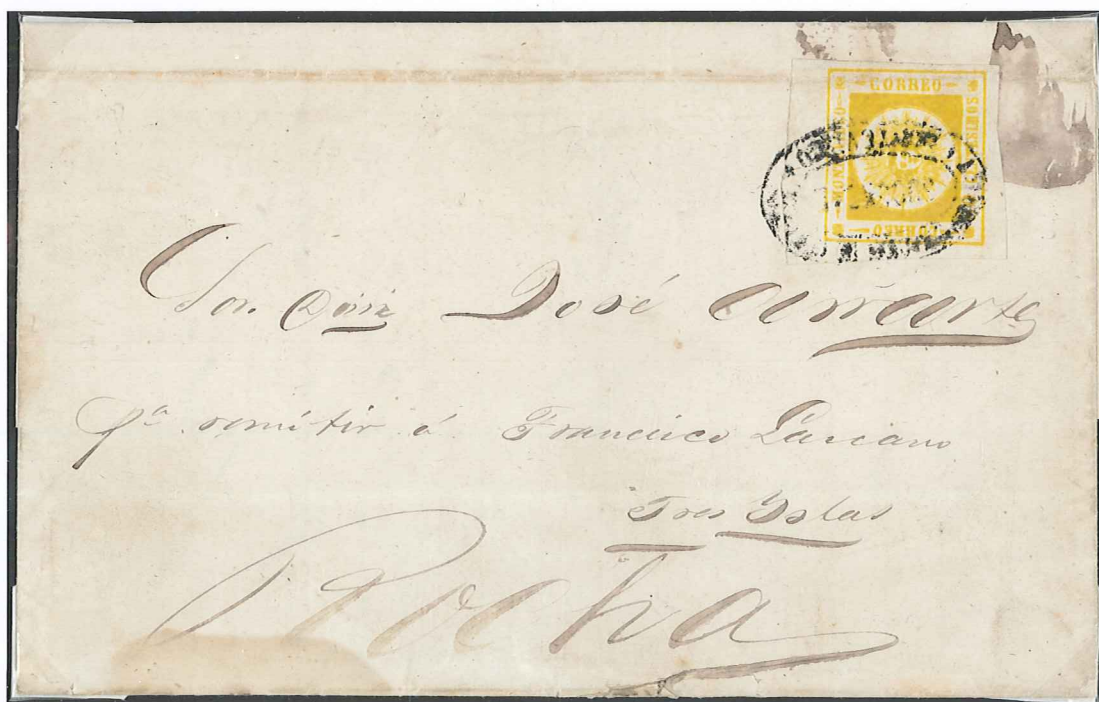 CORREO
MONTEVIDEO
CENTESIMOS
CORREO
Sor. Dn. José Arrarte
pa. remitir á Francisco Lascano
Tres Yslas
Rocha